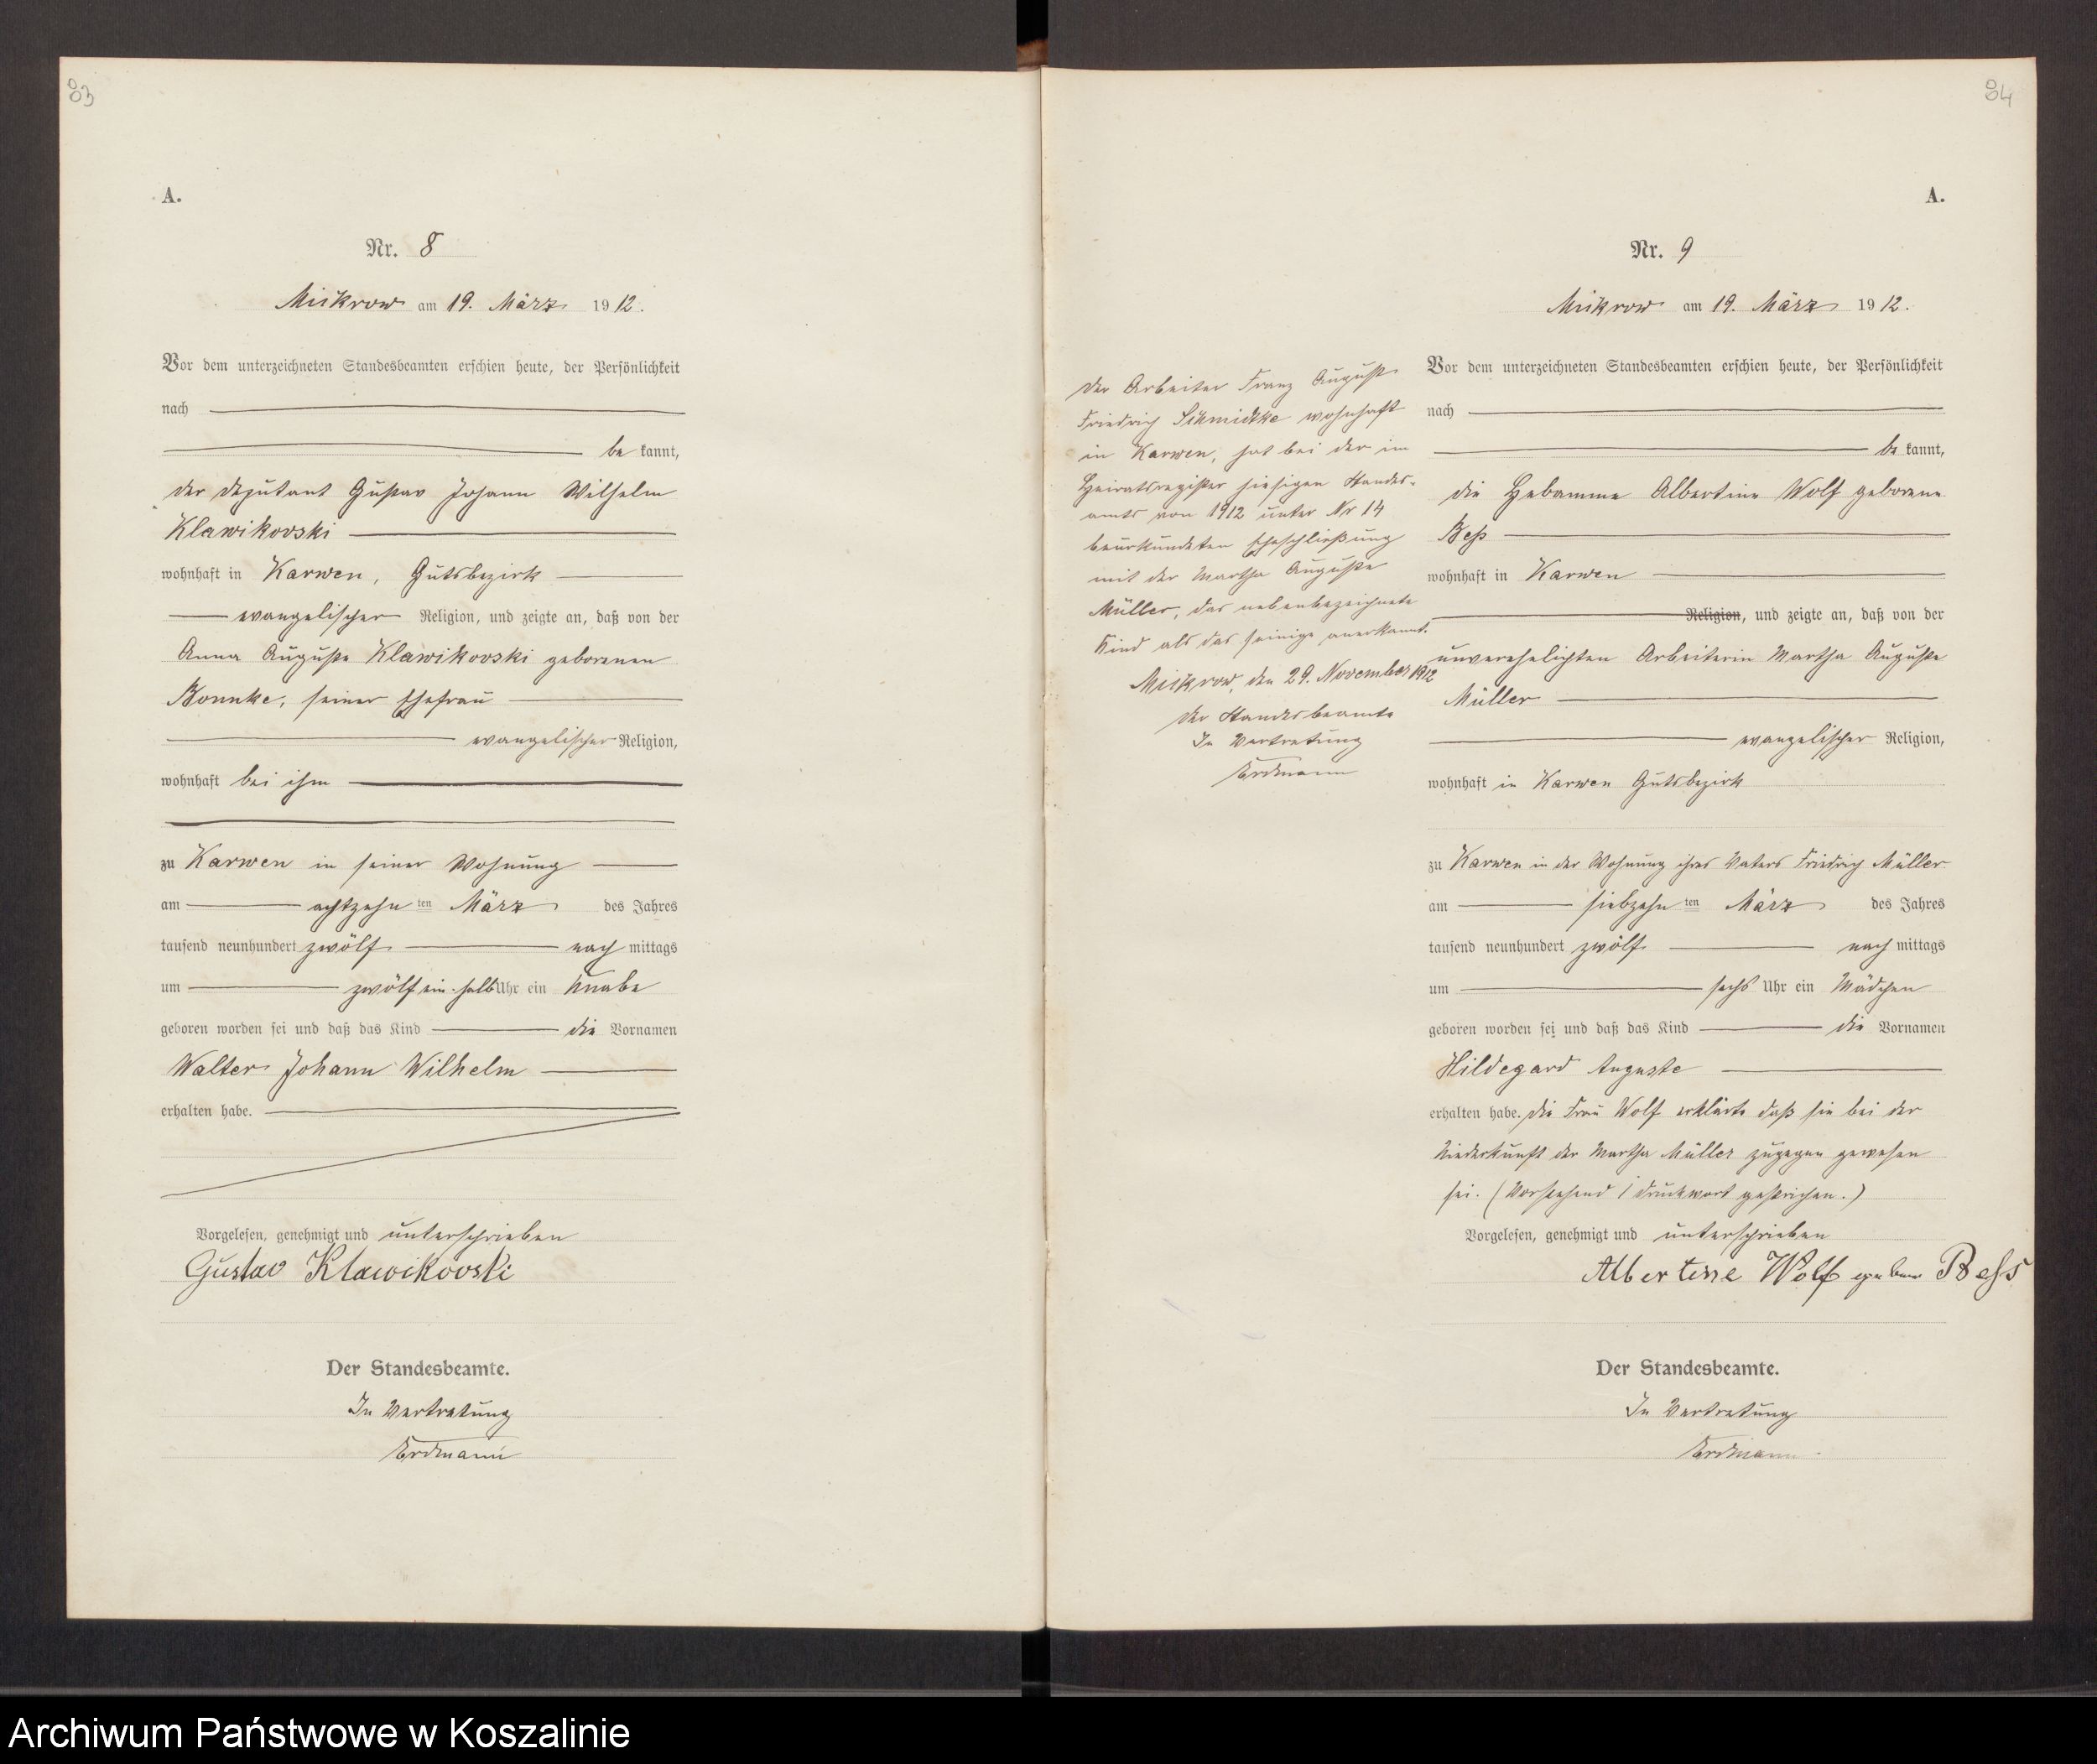 83
A.
Nr. 8
Mickrow am 19. März 1912.
Vor dem unterzeichneten Standesbeamten erschien heute, der Persönlichkeit
nach
be kannt,
der Deputant Gustav Johann Wilhelm
Klawikovski
wohnhaft in Karwen, Gutsbezirk
evangelischer Religion, und zeigte an, daß von der
Anna Auguste Klawikovski geborenen
Bonnke, seiner Ehefrau
evangelischer Religion,
wohnhaft bei ihm
zu Karwen in seiner Wohnung
am achtzehn ten März des Jahres
tausend neunhundert zwölf nach mittags
um zwölf ein halb Uhr ein Knabe
geboren worden sei und daß das Kind die Vornamen
Walter Johann Wilhelm
erhalten habe.
Vorgelesen, genehmigt und unterschrieben
Gustav Klawikovski
Der Standesbeamte.
In Vertretung
Erdmann
84
A.
Nr. 9
Mickrow am 19. März 1912.
Vor dem unterzeichneten Standesbeamten erschien heute, der Persönlichkeit
nach
be kannt,
die Hebamme Albertine Wolf geborene
Beß
wohnhaft in Karwen
Religion, und zeigte an, daß von der
unverehelichten Arbeiterin Martha Auguste
Müller
evangelischer Religion,
wohnhaft in Karwen Gutsbezirk
zu Karwen in der Wohnung ihres Vaters Friedrich Müller
am siebzehn ten März des Jahres
tausend neunhundert zwölf nach mittags
um sechs Uhr ein Mädchen
geboren worden sei und daß das Kind die Vornamen
Hildegard Auguste
erhalten habe. Die Frau Wolf erklärte daß sie bei der
Niederkunft der Martha Müller zugegen gewesen
sei. (Vorstehend 1 Druckwort gestrichen.)
Vorgelesen, genehmigt und unterschrieben
Albertine Wolf geboren Beß
Der Standesbeamte.
In Vertretung
Erdmann
Der Arbeiter Franz August
Friedrich Schmidtke wohnhaft
in Karwen, hat bei der im
Heiratsregister hiesigen Standes-
amts von 1912 unter Nr 14
beurkundeten Eheschließung
mit der Martha Auguste
Müller, das nebenbezeichnete
Kind als das seinige anerkannt.
Mickrow, den 29. November 1912
Der Standesbeamte
In Vertretung
Erdmann
Archiwum Państwowe w Koszalinie